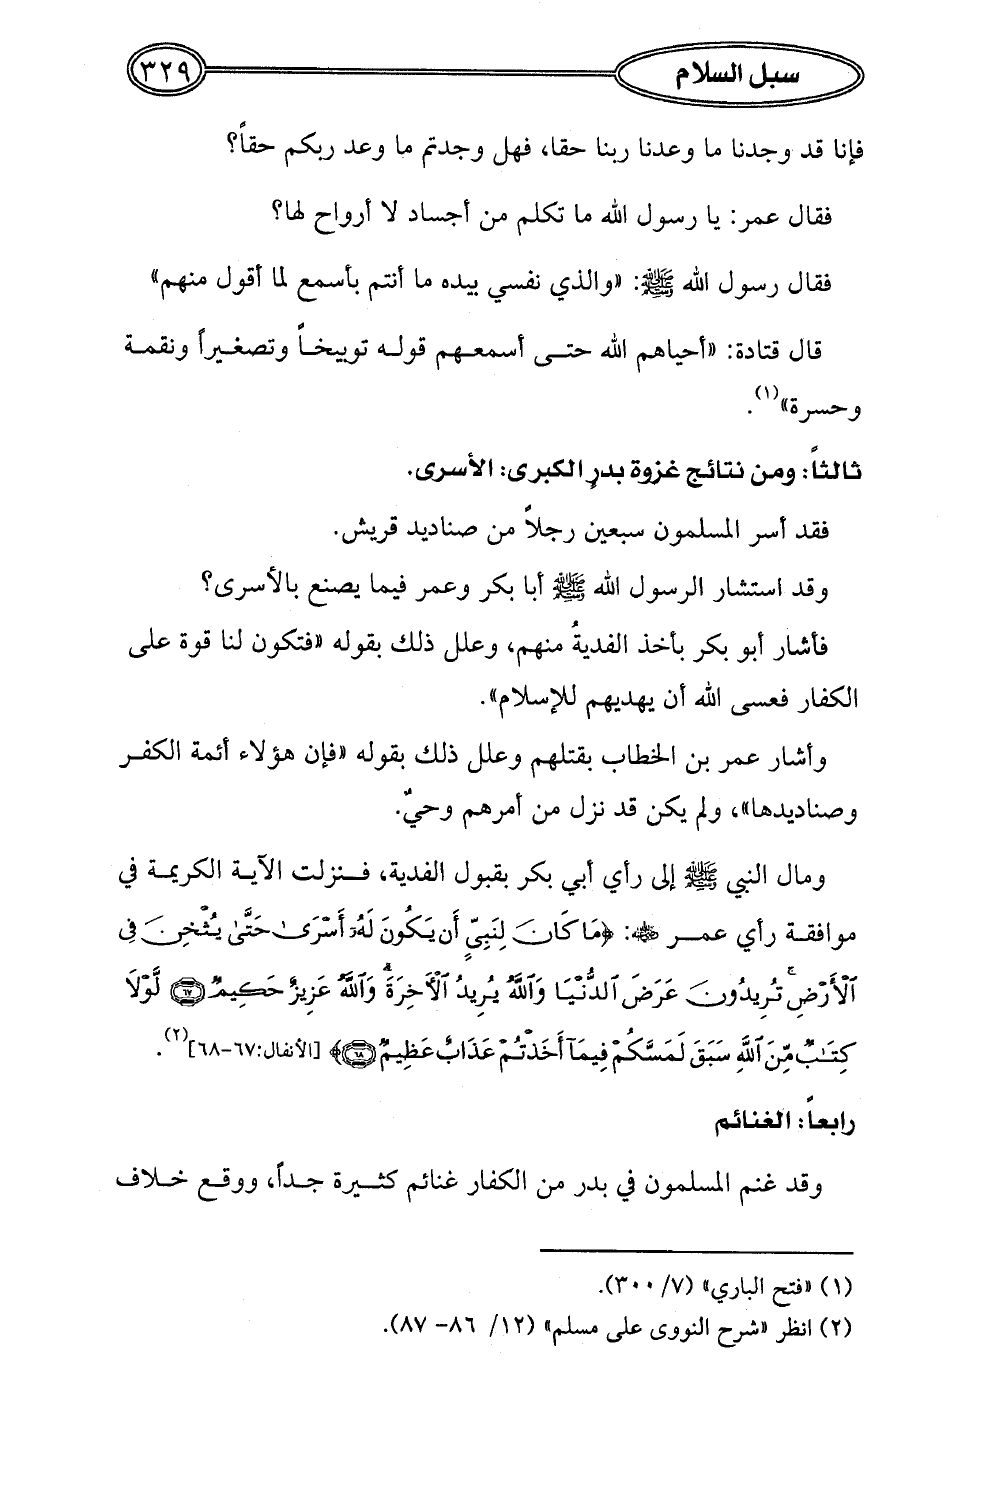 سبل السلام
٣٢٩
فإنا قد وجدنا ما وعدنا ربنا حقا، فهل وجدتم ما وعد ربكم حقاً؟
فقال عمر: يا رسول الله ما تكلم من أجساد لا أرواح لها؟
فقال رسول الله ﷺ: «والذي نفسي بيده ما أنتم بأسمع لما أقول منهم»
قال قتادة: «أحياهم الله حتى أسمعهم قوله توبيخاً وتصغيراً ونقمة
وحسرة»(١).
ثالثاً: ومن نتائج غزوة بدرٍ الكبرى: الأسرى.
فقد أسر المسلمون سبعين رجلاً من صناديد قريش.
وقد استشار الرسول الله ﷺ أبا بكر وعمر فيما يصنع بالأسرى؟
فأشار أبو بكر بأخذ الفديةُ منهم، وعلل ذلك بقوله «فتكون لنا قوة على
الكفار فعسى الله أن يهديهم للإسلام».
وأشار عمر بن الخطاب بقتلهم وعلل ذلك بقوله «فإن هؤلاء أئمة الكفر
وصناديدها»، ولم يكن قد نزل من أمرهم وحيٌ.
ومال النبي ﷺ إلى رأي أبي بكر بقبول الفدية، فنزلت الآية الكريمة في
موافقة رأي عمر رضي الله عنه: ﴿مَا كَانَ لِنَبِيٍّ أَن يَكُونَ لَهُۥٓ أَسْرَىٰ حَتَّىٰ يُثْخِنَ فِى
ٱلْأَرْضِ ۚ تُرِيدُونَ عَرَضَ ٱلدُّنْيَا وَٱللَّهُ يُرِيدُ ٱلْـَٔاخِرَةَ ۗ وَٱللَّهُ عَزِيزٌ حَكِيمٌ ۝٦٧ لَّوْلَا
كِتَٰبٌ مِّنَ ٱللَّهِ سَبَقَ لَمَسَّكُمْ فِيمَآ أَخَذْتُمْ عَذَابٌ عَظِيمٌ ۝٦٨﴾ [الأنفال:٦٧-٦٨](٢).
رابعاً: الغنائم
وقد غنم المسلمون في بدر من الكفار غنائم كثيرة جداً، ووقع خلاف
(١) «فتح الباري» (٧/ ٣٠٠).
(٢) انظر «شرح النووى على مسلم» (١٢/ ٨٦- ٨٧).